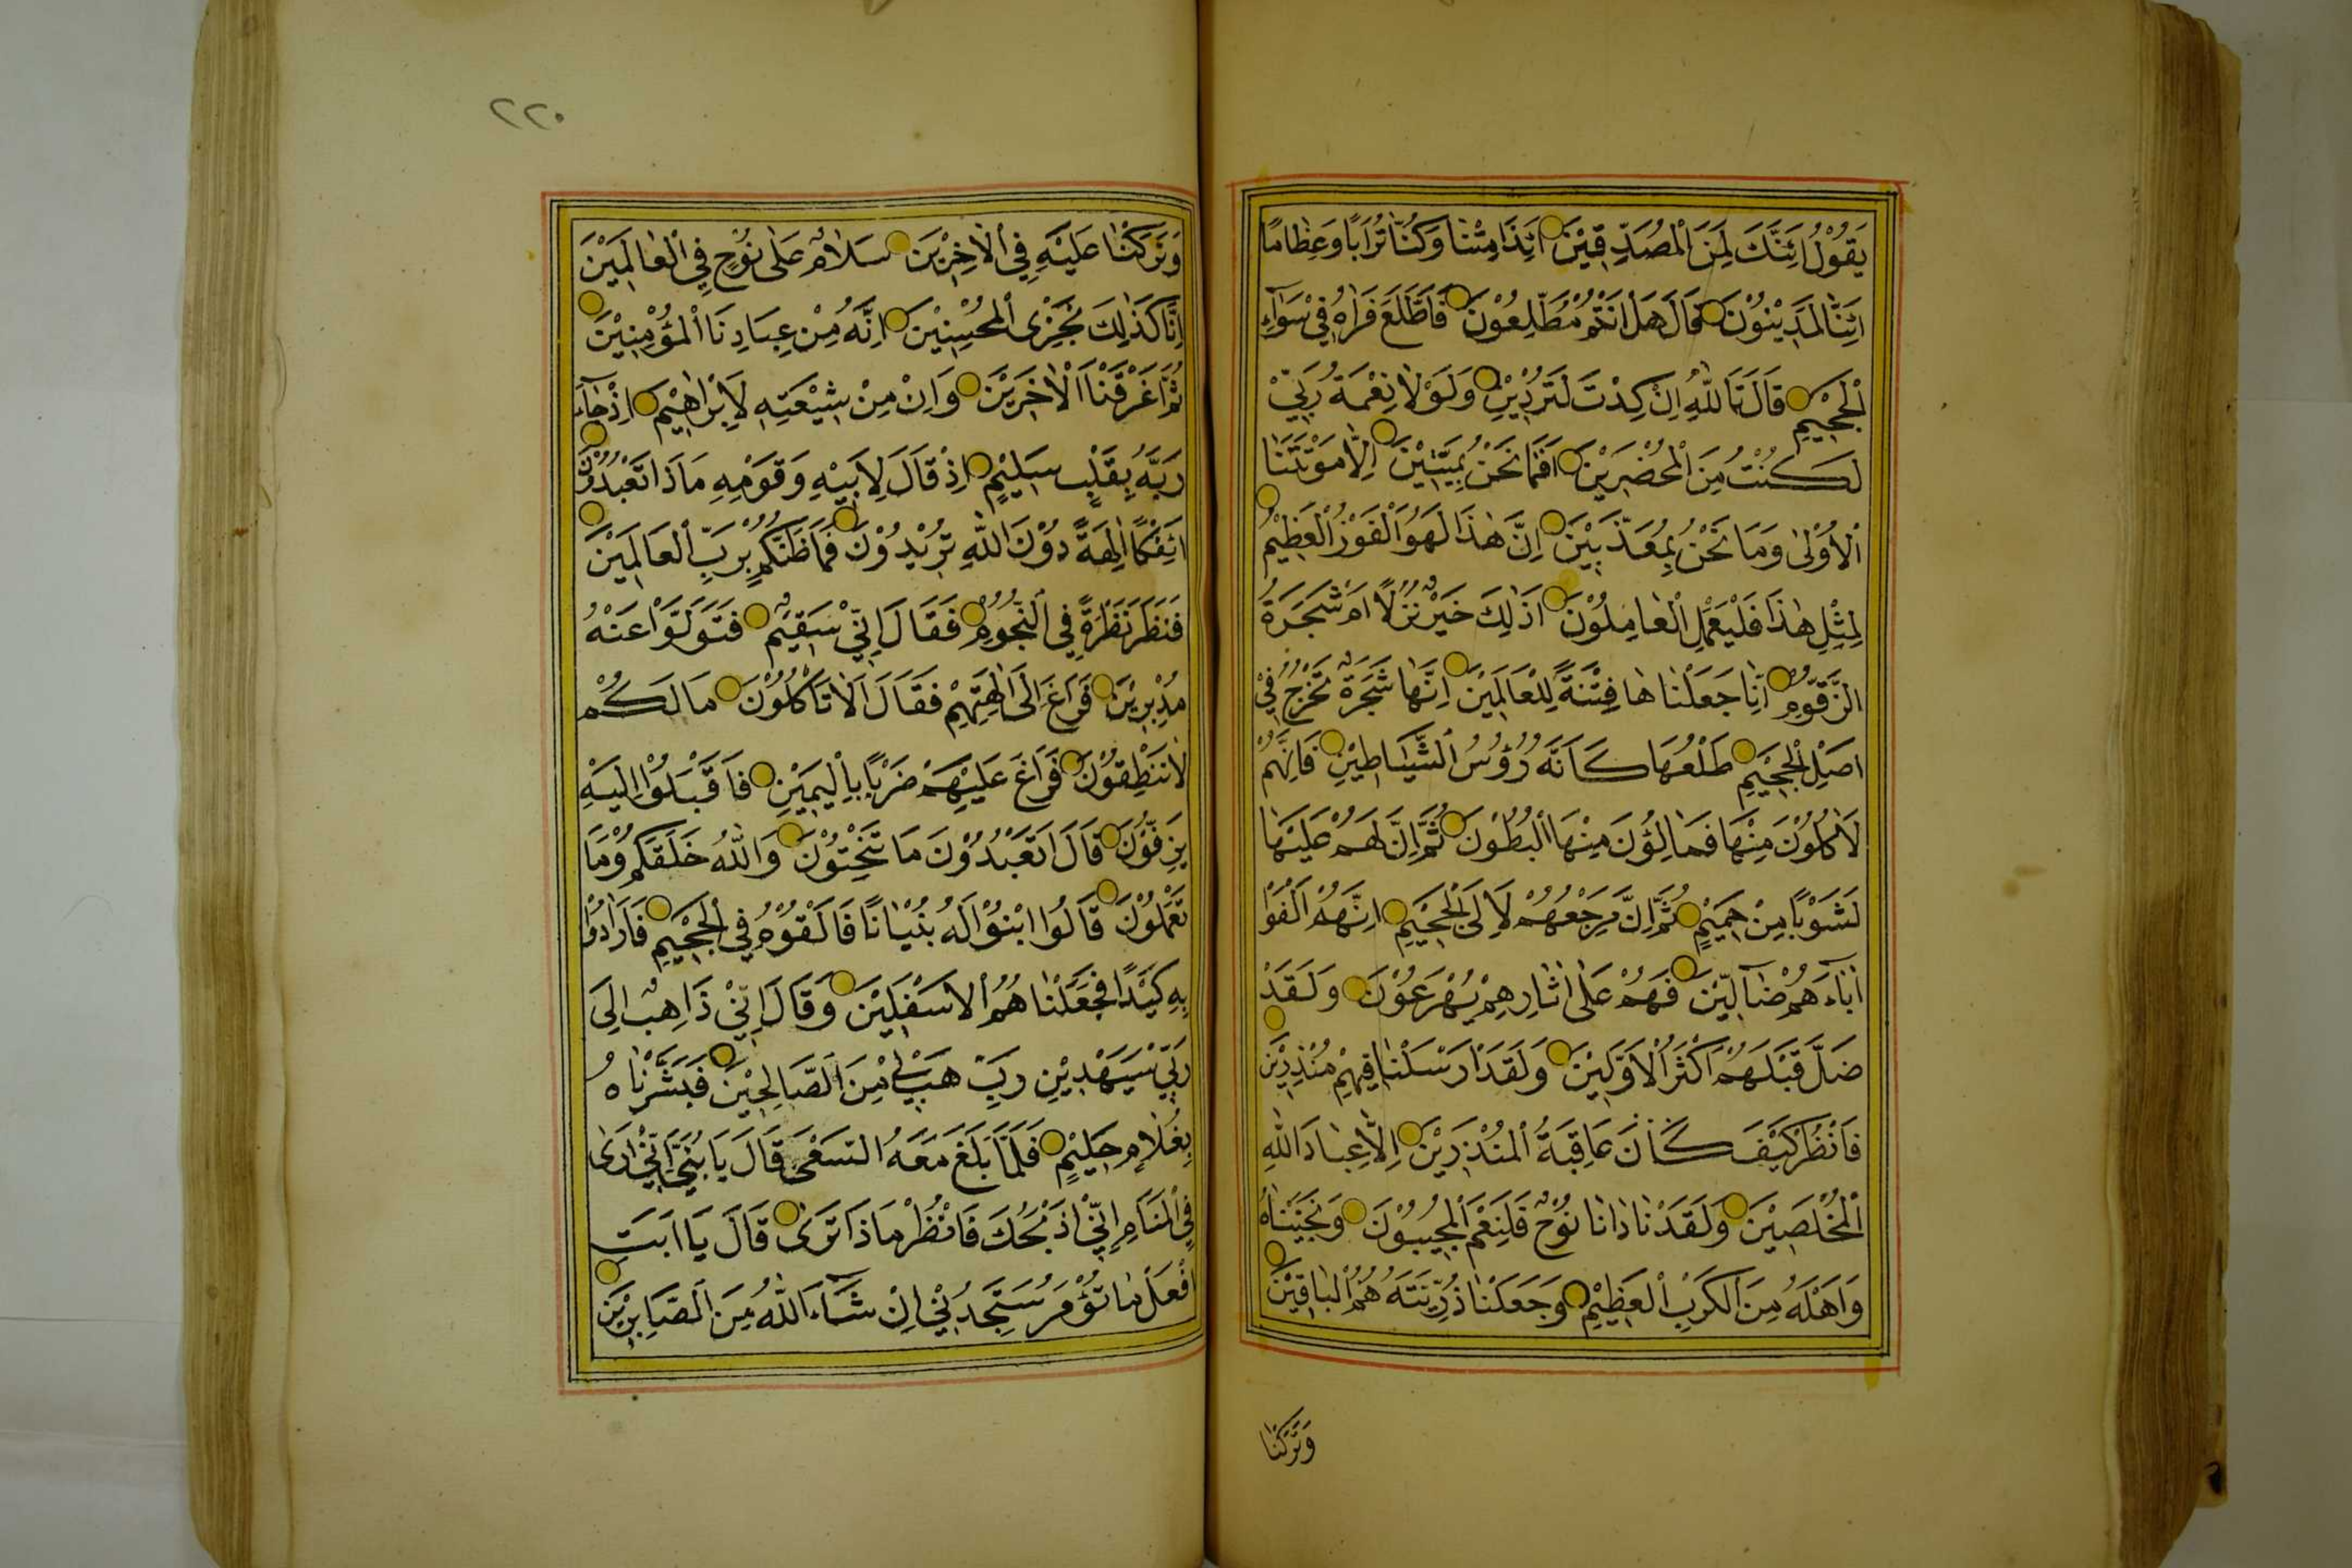 يَقُوْلُ ائِنَّكَ لَمِنَ الْمُصَدِّقِيْنَ ائِذَا مِتْنَا وَكُنَّا تُرَابًا وَعِظَامًا
ائِنَّا لَمَدِيْنُوْنَ قَالَ هَلْ اَنْتُمْ مُطَّلِعُوْنَ فَاطَّلَعَ فَرَاٰهُ فِيْ سَوَآءِ
الْجَحِيْمِ قَالَ تَاللّٰهِ اِنْ كِدْتَ لَتُرْدِيْنِ وَلَوْلَا نِعْمَةُ رَبِّيْ
لَكُنْتُ مِنَ الْمُحْضَرِيْنَ اَفَمَا نَحْنُ بِمَيِّتِيْنَ اِلَّا مَوْتَتَنَا
الْاُوْلٰى وَمَا نَحْنُ بِمُعَذَّبِيْنَ اِنَّ هٰذَا لَهُوَ الْفَوْزُ الْعَظِيْمُ
لِمِثْلِ هٰذَا فَلْيَعْمَلِ الْعَامِلُوْنَ اَذٰلِكَ خَيْرٌ نُزُلًا اَمْ شَجَرَةُ
الزَّقُّوْمِ اِنَّا جَعَلْنَاهَا فِتْنَةً لِلْعَالَمِيْنَ اِنَّهَا شَجَرَةٌ تَخْرُجُ فِيْ
اَصْلِ الْجَحِيْمِ طَلْعُهَا كَاَنَّهُ رُؤُسُ الشَّيَاطِيْنِ فَاِنَّهُمْ
لَاٰكِلُوْنَ مِنْهَا فَمَالِؤُنَ مِنْهَا الْبُطُوْنَ ثُمَّ اِنَّ لَهُمْ عَلَيْهَا
لَشَوْبًا مِنْ حَمِيْمٍ ثُمَّ اِنَّ مَرْجِعَهُمْ لَاِلَى الْجَحِيْمِ اِنَّهُمْ اَلْفَوْا
اٰبَآءَهُمْ ضَآلِّيْنَ فَهُمْ عَلٰى اٰثَارِهِمْ يُهْرَعُوْنَ وَلَقَدْ
ضَلَّ قَبْلَهُمْ اَكْثَرُ الْاَوَّلِيْنَ وَلَقَدْ اَرْسَلْنَا فِيْهِمْ مُنْذِرِيْنَ
فَانْظُرْ كَيْفَ كَانَ عَاقِبَةُ الْمُنْذَرِيْنَ اِلَّا عِبَادَ اللّٰهِ
الْمُخْلَصِيْنَ وَلَقَدْ نَادَانَا نُوْحٌ فَلَنِعْمَ الْمُجِيْبُوْنَ وَنَجَّيْنَاهُ
وَاَهْلَهُ مِنَ الْكَرْبِ الْعَظِيْمِ وَجَعَلْنَا ذُرِّيَّتَهُ هُمُ الْبَاقِيْنَ
وَتَرَكْنَا
٢٢٠
وَتَرَكْنَا عَلَيْهِ فِي الْاٰخِرِيْنَ سَلَامٌ عَلٰى نُوْحٍ فِي الْعَالَمِيْنَ
اِنَّا كَذٰلِكَ نَجْزِى الْمُحْسِنِيْنَ اِنَّهُ مِنْ عِبَادِنَا الْمُؤْمِنِيْنَ
ثُمَّ اَغْرَقْنَا الْاٰخَرِيْنَ وَاِنَّ مِنْ شِيْعَتِهِ لَاِبْرَاهِيْمَ اِذْ جَآءَ
رَبَّهُ بِقَلْبٍ سَلِيْمٍ اِذْ قَالَ لِاَبِيْهِ وَقَوْمِهِ مَاذَا تَعْبُدُوْنَ
ائِفْكًا اٰلِهَةً دُوْنَ اللّٰهِ تُرِيْدُوْنَ فَمَا ظَنُّكُمْ بِرَبِّ الْعَالَمِيْنَ
فَنَظَرَ نَظْرَةً فِي النُّجُوْمِ فَقَالَ اِنِّيْ سَقِيْمٌ فَتَوَلَّوْا عَنْهُ
مُدْبِرِيْنَ فَرَاغَ اِلٰى اٰلِهَتِهِمْ فَقَالَ اَلَا تَاْكُلُوْنَ مَا لَكُمْ
لَا تَنْطِقُوْنَ فَرَاغَ عَلَيْهِمْ ضَرْبًا بِالْيَمِيْنِ فَاَقْبَلُوْا اِلَيْهِ
يَزِفُّوْنَ قَالَ اَتَعْبُدُوْنَ مَا تَنْحِتُوْنَ وَاللّٰهُ خَلَقَكُمْ وَمَا
تَعْمَلُوْنَ قَالُوا ابْنُوْا لَهُ بُنْيَانًا فَاَلْقُوْهُ فِي الْجَحِيْمِ فَاَرَادُوْا
بِهِ كَيْدًا فَجَعَلْنَاهُمُ الْاَسْفَلِيْنَ وَقَالَ اِنِّيْ ذَاهِبٌ اِلٰى
رَبِّيْ سَيَهْدِيْنِ رَبِّ هَبْ لِيْ مِنَ الصَّالِحِيْنَ فَبَشَّرْنَاهُ
بِغُلَامٍ حَلِيْمٍ فَلَمَّا بَلَغَ مَعَهُ السَّعْىَ قَالَ يَا بُنَيَّ اِنِّيْ اَرٰى
فِي الْمَنَامِ اِنِّيْ اَذْبَحُكَ فَانْظُرْ مَاذَا تَرٰى قَالَ يَا اَبَتِ
افْعَلْ مَا تُؤْمَرُ سَتَجِدُنِيْ اِنْ شَآءَ اللّٰهُ مِنَ الصَّابِرِيْنَ